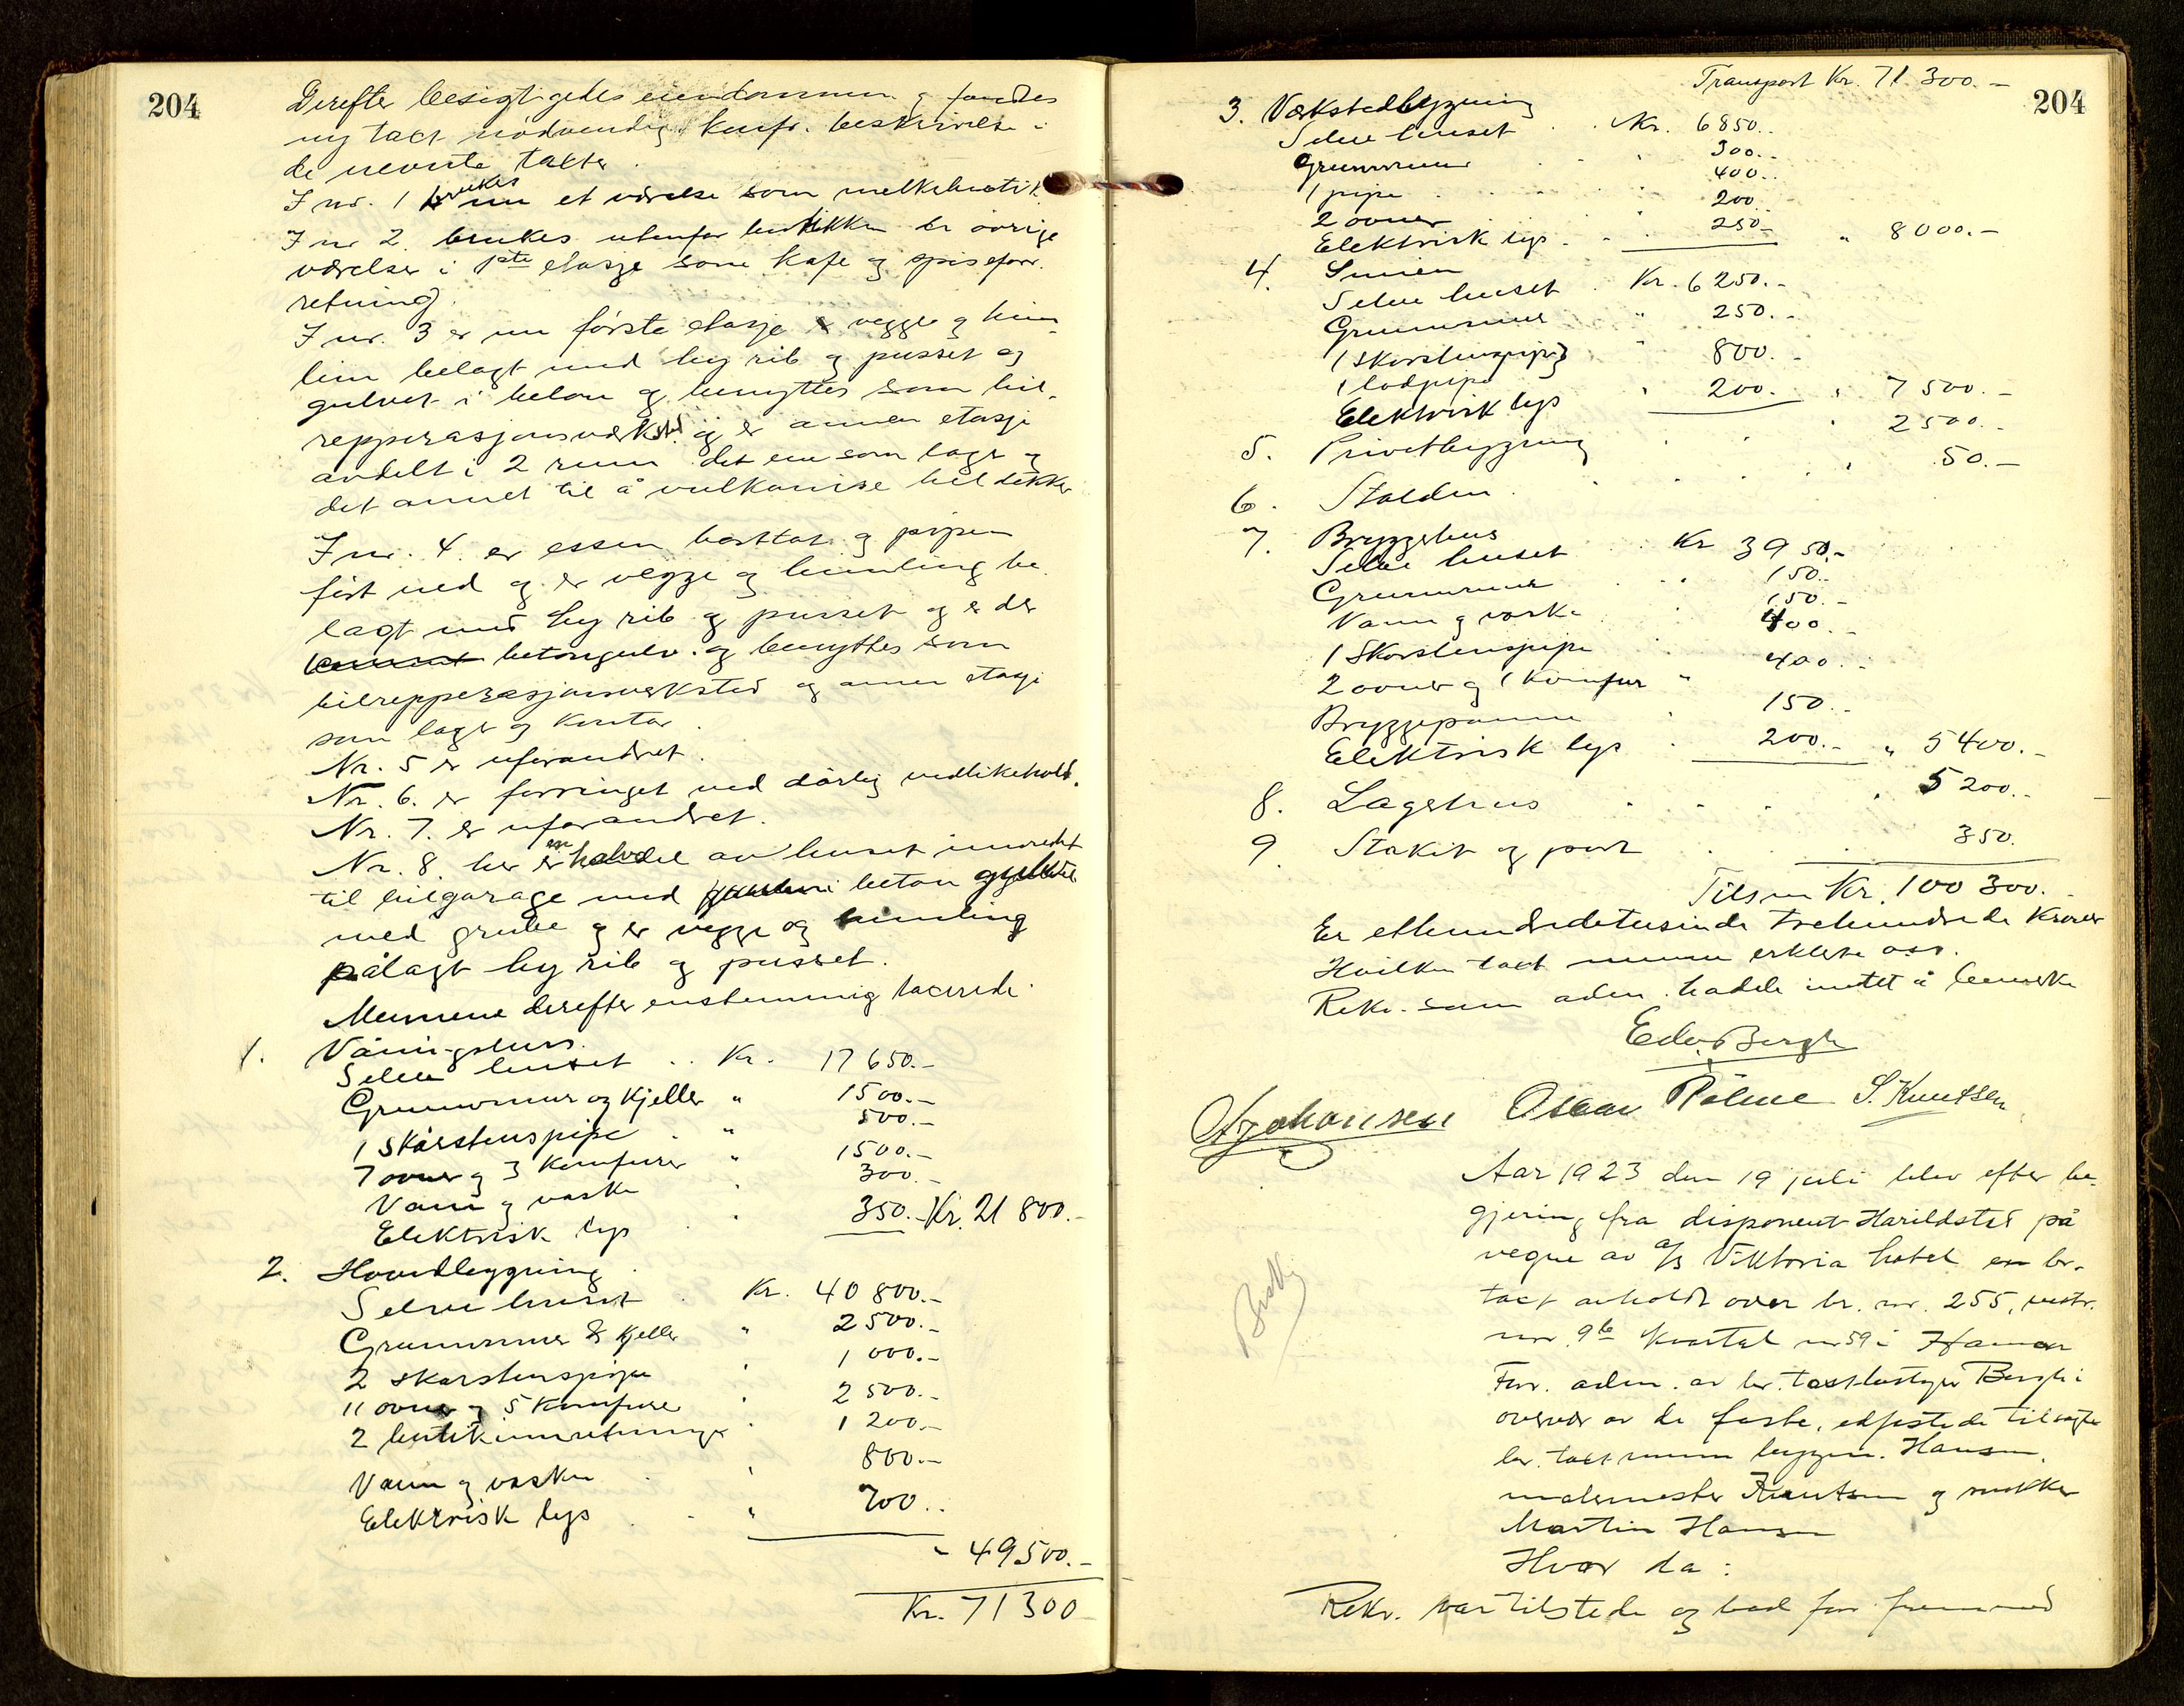 204
Derefter besigtigedes eiendommen og fandtes
ny taxt nödvendig. konfr. beskrivelse i
de nevnte takter.
I nr. 1 brukes nu et værelse som melkebutik.
I nr 2. brukes utenfor butikken de övrige
værelser i 1ste etasje som kafe og spisefor-
retning.
I nr. 3 er nu förste etasje vegge og him
ling belagt med hy rib og pusset og
gulvet i beton og benyttes som bil-
repperasjonsværksted og er annen etasje
avdelt i 2 rum det ene som lager og
det annet til å vulkanise bildekker
I nr. 4. er essen borttat og pipen
fört ned og er vegge og himling be
lagt med hy rib og pusset og er der
cement betongulv. og benyttes som
bilrepperasjonsverksted og annen etasje
som lager og kontor.
Nr. 5 er uforandret.
Nr. 6. er forringet ved dårlig vedlikehold.
Nr. 7. er uforandret.
Nr. 8. her er en halvdel av huset innredet
til bilgarage med beton
med grube og er vegge og himling
pålagt hy rib og pusset.
Mennene derefter enstemmig taxerede.
1. Våningshus.
Selve huset .. Kr. 17 650.-
Grunnmur og Kjeller " 1500.-
1 Skorstenspipe . " 500.-
7 ovner og 3 Komfurer " 1500.-
Vann og vaske " 300.-
Elektrisk lys . " 350.- Kr. 21 800.-
2. Hovedbygning.
Selve huset . Kr. 40 800.-
Grunnmur & Kjeller " 2500.-
2 skorstenspipe " 1 000.-
11 ovner og 5 Komfurer " 2 500.-
2 butikinnretninger " 1 200.-
Vann og vasker . " 800.-
Elektrisk lys . - " 700..
" 49 500.-
Kr. 71 300
204
Transport Kr. 71 300.-
3. Værkstedbygning
Selve huset . . Kr. 6850..
Grunnmur . " 300.-
1 pipe . . . " 400.-
2 ovner . . " 200.
Elektrisk lys . . " 250- " 8000.-
4. Smien
Selve huset . Kr. 6250.-
Grunnmur " 250.-
1 skorstenspipe }
1 lodpipe " 800.-
Elektrisk lys " 200. " 7 500.-
5. Privetbygning . . . 2500.-
6. Stalden . . . . " 50.-
7. Bryggehus
Selve huset . . Kr 3950.-
Grunnmur . . " 150.-
Vann og vaske . " 150.-
1 Skorstenspipe . " 400.-
2 ovner og 1 Komfur " 400.-
Bryggepanne . 150.-
Elektrisk lys . 200.- " 5400.-
8. Lagerhus . . . . 5200.-
9. Stakit og port . . . 350.
Tilsm Kr. 100 300.-
Er etthundredetusinde trehundrede Kroner
Hvilken taxt mennene erklerte oss.
Rekv. som aden. hadde inntet å bemerke
Edv. Bergh
A Johansen Oscar Pölme S. Knutsen
Aar 1923 den 19 juli blev efter be-
gjering fra disponent Harildstad på
vegne av a/s Viktoria hotel en br.
taxt avholdt over br. nr. 255, matr.
nr 9b Kvartal nr 59 i Hamar
Forr. adm. av br. taxtbestyrer Bergh i
overvær av de faste, edfestede tilsagte
br. taxtmenn byggm. Hansen,
malermester Knutsen og snekker
Martin Hansen
Hvor da:
Rekv. var tilstede og bad for fremmed